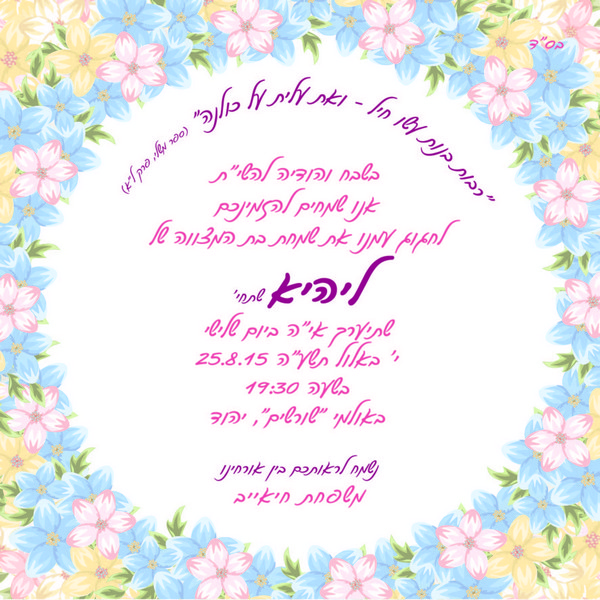 בס"ד
"רבות בנות עשו חיל - ואת עלית על כולנה" (ספר משלי, פרק ל"א)
בשבח והודיה להשי"ת
אנו שמחים להזמינכם
לחגוג עמנו את שמחת בת המצווה של
ליהיא שתחי'
שתיערך אי"ה ביום שלישי
י' באלול תשע"ה 25.8.15
בשעה 19:30
באולמי "שורשים", יהוד
נשמח לראותכם בין אורחינו
משפחת חיאייב